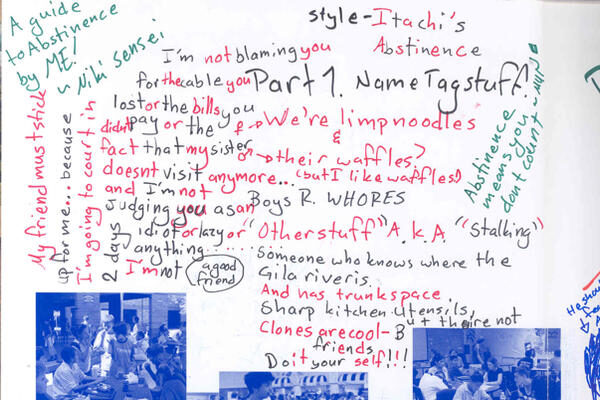 A guide
to Abstinence
by ME!
~ Niki sensei
style - Itachi's
Abstinence
I'm not blaming you
for the cable you
lost or the bills you
didnt pay or the
fact that my sister
doesnt visit anymore...
and I'm not
Judging you as an
idiot or lazy or
anything......
I'm not a good
friend
Part 1. Name Tag stuff.
♀→ We're limp noodles
&
♂→ their waffles?
(but I like waffles)
Boys R. WHORES
"Other stuff" A.K.A. "Stalking"
Someone who knows where the
Gila river is.
And has trunk space,
Sharp kitchen utensils,
Clones are cool - But they're not
friends
Do it your self!!!
My friend must stick
up for me... because
I'm going to court in
2 days
Abstinence
means you
dont count